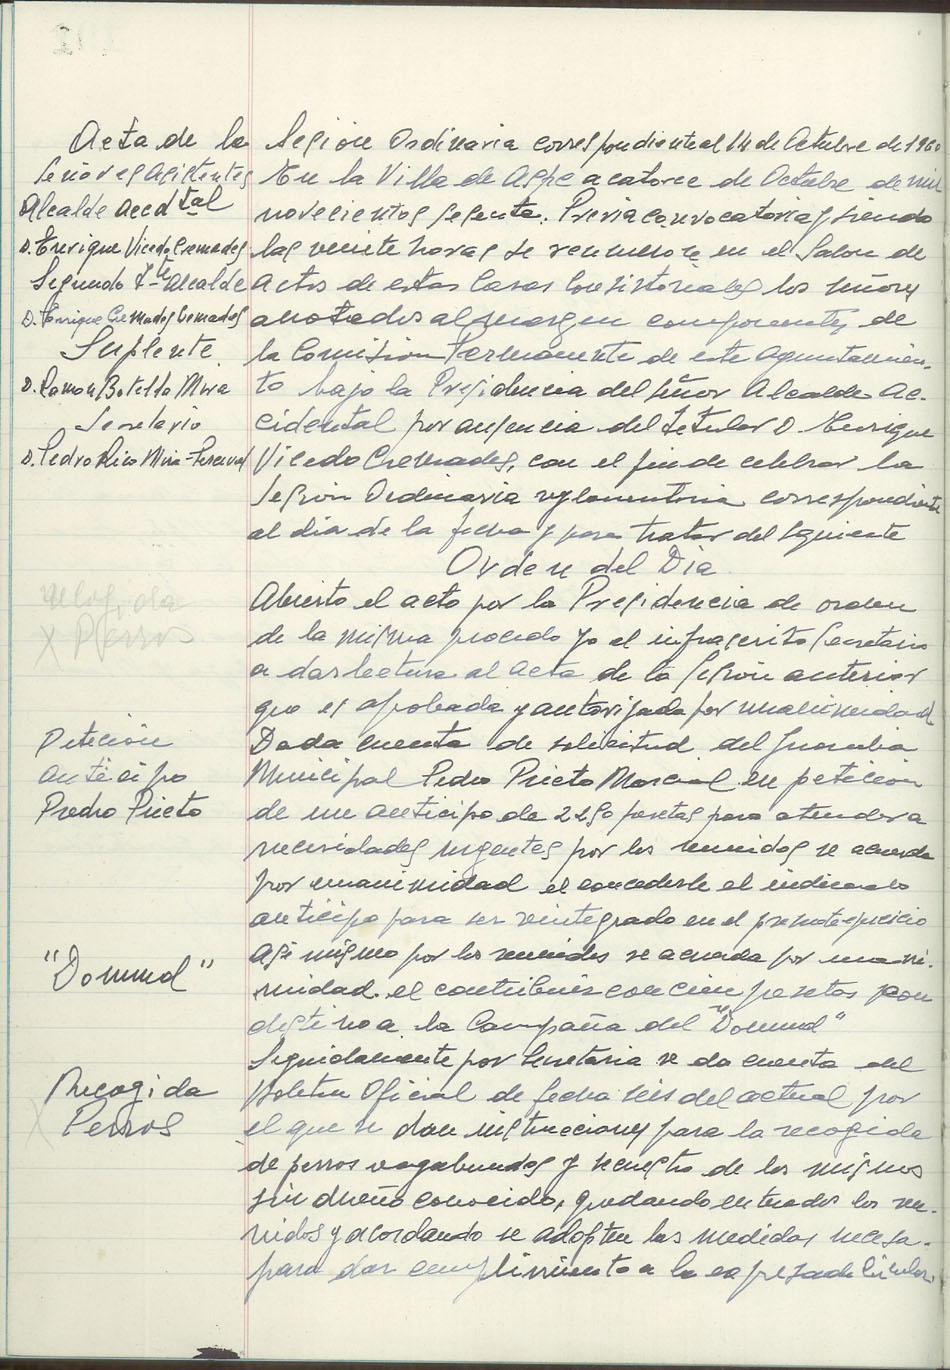 Acta de la Sesión Ordinaria correspondiente al 14 de Octubre de 1960
Señores Asistentes
Alcalde Acctal
D. Enrique Vicedo Cremades
Segundo Tte Alcalde
D. Enrique Cremades Cremades
Suplente
D. Ramon Botella Mira
Secretario
D. Pedro Rico Mira-Perceval
En la Villa de Aspe a catorce de Octubre de mil
novecientos sesenta. Previa convocatoria y siendo
las veinte horas se reunieron en el Salon de
Actos de estas Casas Consistoriales los señores
anotados al margen componentes de
la Comision Permanente de este Ayuntamien-
to bajo la Presidencia del señor Alcalde Ac-
cidental por ausencia del Titular D. Enrique
Vicedo Cremades, con el fin de celebrar la
Sesion Ordinaria reglamentaria correspondiente
al dia de la fecha y para tratar del siguiente
Orden del Dia
recogida
X Perros
Abierto el acto por la Presidencia de orden
de la misma procedo yo el infrascrito Secretario
a dar lectura al acta de la Sesión anterior
que es aprobada y autorizada por unanimidad
Petición
anticipo
Pedro Prieto
Dada cuenta de solicitud del Guardia
Municipal Pedro Prieto Marcial en peticion
de un anticipo de 2250 pesetas para atender a
necesidades urgentes por los reunidos se acuerda
por unanimidad el concederle el indicado
anticipo para ser reintegrado en el presente ejercicio
"Domund"
Asi mismo por los reunidos se acuerda por unani-
midad el contribuir con cien pesetas con
destino a la Campaña del "Domund"
Recogida
Perros
Seguidamente por Secretaria se da cuenta del
Boletin Oficial de fecha seis del actual por
el que se dan instrucciones para la recogida
de perros vagabundos y secuestro de los mismos
sin dueño conocido, quedando enterados los reu-
nidos y acordando se adopten las medidas necesa-
para dar cumplimiento a la expresada Circular.